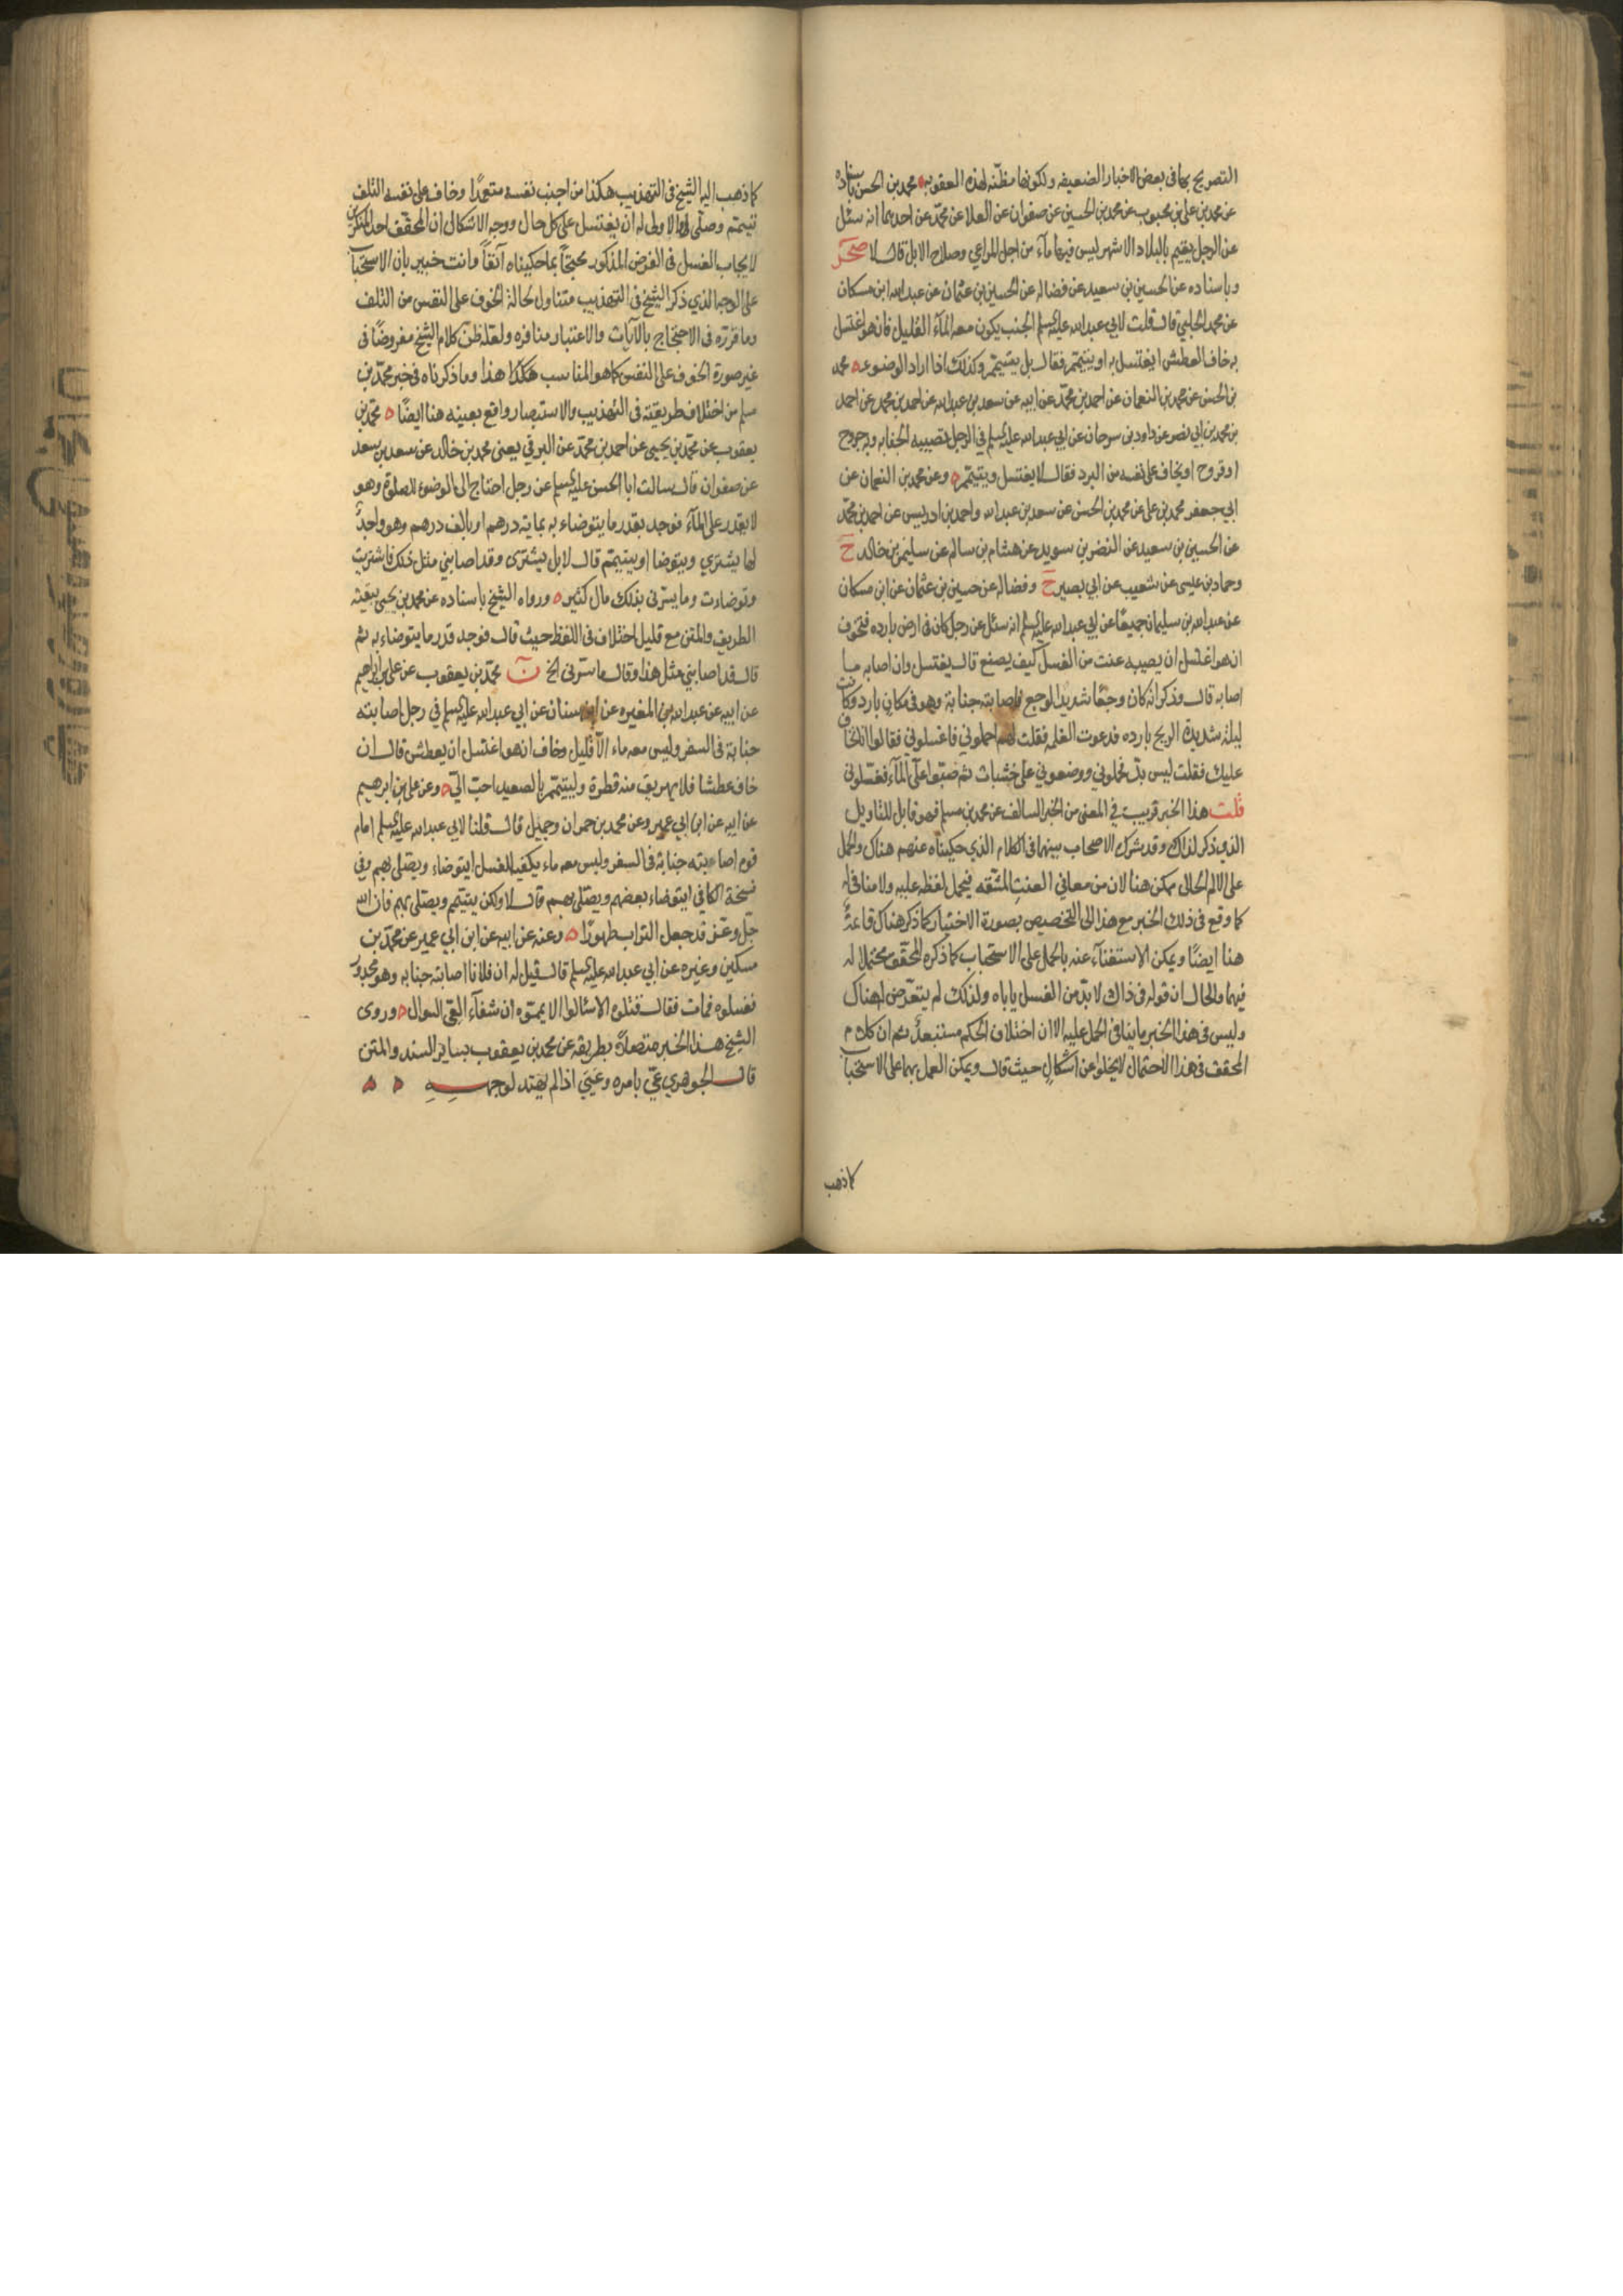 التصريح بها في بعض الاخبار الضعيفه ولكونها مظنّه لهذه العقوبه محمد بن الحسن باسناده
عن محمد بن علي بن محبوب عن محمد بن الحسين عن صفوان عن العلا عن محمّد عن احدهما انه سئل
عن الرجل يقيم بالبلاد الاشهر ليس فيها مآء من اجل المراعي وصلاح الابل قال لا صحر
وباسناده عن الحسين بن سعيد عن فضاله عن الحسين بن عثمان عن عبد الله ابن مسكان
عن محمد الحلبي قال قلت لابي عبد الله عليه السلم الجنب يكون معه المآء القليل فان هو اغتسل
به خاف العطش ايغتسل به او يتيمّم فقال بل يتيمّم وكذلك اذا اراد الوضوء محمد
بن الحسن عن محمد بن النعمان عن احمد بن محمّد عن ابيه عن سعد بن عبد الله عن احمد بن محمد عن احمد
بن محمد بن ابي نصر عن داود بن سرحان عن ابي عبد الله عليه السلم في الرجل تصيبه الجنابه وبه جروح
او قروح او يخاف على نفسه من البرد فقال لا يغتسل ويتيمّم وعن محمد بن النعمان عن
ابي جعفر محمد بن علي عن محمد بن الحسن عن سعد بن عبد الله واحمد بن ادريس عن احمد بن محمّد
عن الحسين بن سعيد عن النضر بن سويد عن هشام بن سالم عن سليمن بن خالد ح
وحماد بن عيسى عن شعيب عن ابي بصير ح وفضاله عن حسين بن عثمان عن ابن مسكان
عن عبد الله بن سليمان جميعًا عن ابي عبد الله عليه السلم انه سئل عن رجل كان في ارض بارده فتخوّف
ان هو اغتسل ان يصيبه عنت من الغسل كيف يصنع قال يغتسل وان اصابه ما
اصابه قال وذكر انه كان وجعًا شديد الوجع فاصابته جنابة وهو في مكان بارد وكانت
ليلة شديدة الريح بارده فدعوت الغلمه فقلت لهم احملوني فاغسلوني فقالوا انا نخاف
عليك فقلت ليس بدّ فحملوني ووضعوني على خشبات ثم صبّوا علىّ المآء فغسلوني
قلت هذا الخبر قريب في المعنى من الخبر السالف عن محمد بن مسلم فهو قابل للتاويل
الذي ذكر لذاك وقد شرك الاصحاب بينهما في الكلام الذي حكيناه عنهم هناك والحمل
على الالم الحالى ممكن هنا لان من معاني العنت المشقّه فيحمل لفظه عليه ولا منافي له
كما وقع في ذلك الخبر مع هذا الى التخصيص بصورة الاختيار كما ذكر هناك
هنا ايضًا ويمكن الاستغنآء عنه بالحمل على الاستحباب كما ذكره المحقّق محتملا له
فيهما والحال ان قوله في ذاك لا بدّ من الغسل ياباه ولذلك لم يتعرّض له هناك
وليس في هذا الخبر ما ينافي الحمل عليه الا ان اختلاف الحكم مستبعد ثم ان كلام
المحقق في هذا الاحتمال لا يخلو عن اشكالٍ حيث قال ويمكن العمل بهما على الاستحباب
كما ذهب
كما ذهب اليه الشيخ في التهذيب هكذا من اجنب نفسه متعمّدًا وخاف على نفسه التلف
تيمّم وصلّى والاولى له ان يغتسل على كل حال ووجه الاشكال ان المحقّق احد المنكرين
لايجاب الغسل في الفرض المذكور محتجّاً بما حكيناه آنفاً وانت خبير بان الاستحباب
على الوجه الذي ذكر الشيخ في التهذيب متناول لحالة الخوف على النفس من التلف
وما قرّره في الاحتجاج بالآيات والاعتبار منافره ولعله ظن كلام الشيخ مفروضًا في
غير صورة الخوف على النفس كما هو المناسب هكذا هذا وما ذكرناه في خبر محمّد بن
مسلم من اختلاف طريقته في التهذيب والاستبصار واقع بعينه هنا ايضًا محمّد بن
يعقوب عن محمّد بن يحيى عن احمد بن محمّد عن البرقي يعنى محمد بن خالد عن سعد بن سعد
عن صفوان قال سالت ابا الحسن عليه السلم عن رجل احتاج الى الوضوء للصلوة وهو
لا يقدر على المآء فوجد بقدر ما يتوضاء به بمايه درهم او بالف درهم وهو واجدٌ
لها يشتري ويتوضا او يتيمّم قال لا بل يشترى وقد اصابني مثل ذلك فاشتريت
وتوضات وما يسرّني بذلك مال كثير ورواه الشيخ باسناده عن محمد بن يحيى ببقيّه
الطريق والمتن مع قليل اختلاف في اللفظ حيث قال فوجد قدر ما يتوضاء به ثم
قال قد اصابني مثل هذا وقال ما سرّنى الخ ن محمّد بن يعقوب عن علي بن ابراهيم
عن ابيه عن عبد الله بن المغيره عن ابن سنان عن ابي عبد الله عليه السلم في رجل اصابته
جنابة في السفر وليس معه ماء الّا قليل وخاف ان هو اغتسل ان يعطش قال ان
خاف عطشا فلا يهريق منه قطرة وليتيمّم بالصعيد احبّ اليّ وعن علي بن ابرهيم
عن ابيه عن ابن ابي عمير وعن محمد بن حمران وجميل قال قلنا لابي عبد الله عليه السلم امام
قوم اصابته جنابة في السفر وليس معه ماء يكفيه للغسل ايتوضاء ويصلّي بهم وفي
نسخة الكافي ايتوضاء بعضهم ويصلّي بهم قال لا ولكن يتيمّم ويصلّي بهم فان الله
جلّ وعزّ قد جعل التراب طهورًا وعنه عن ابيه عن ابن ابي عمير عن محمّد بن
مسكين وغيره عن ابي عبد الله عليه السلم قال قيل له ان فلانا اصابته جنابه وهو مجدور
فغسلوه فمات فقال قتلوه الا سئالوا الا يمّموه ان شفآء العيّ السوال وروى
الشيخ هذا الخبر متصلاً بطريقه عن محمد بن يعقوب بساير السند والمتن
قال الجوهري عيّ بامره وعيي اذا لم يهتد لوجهه